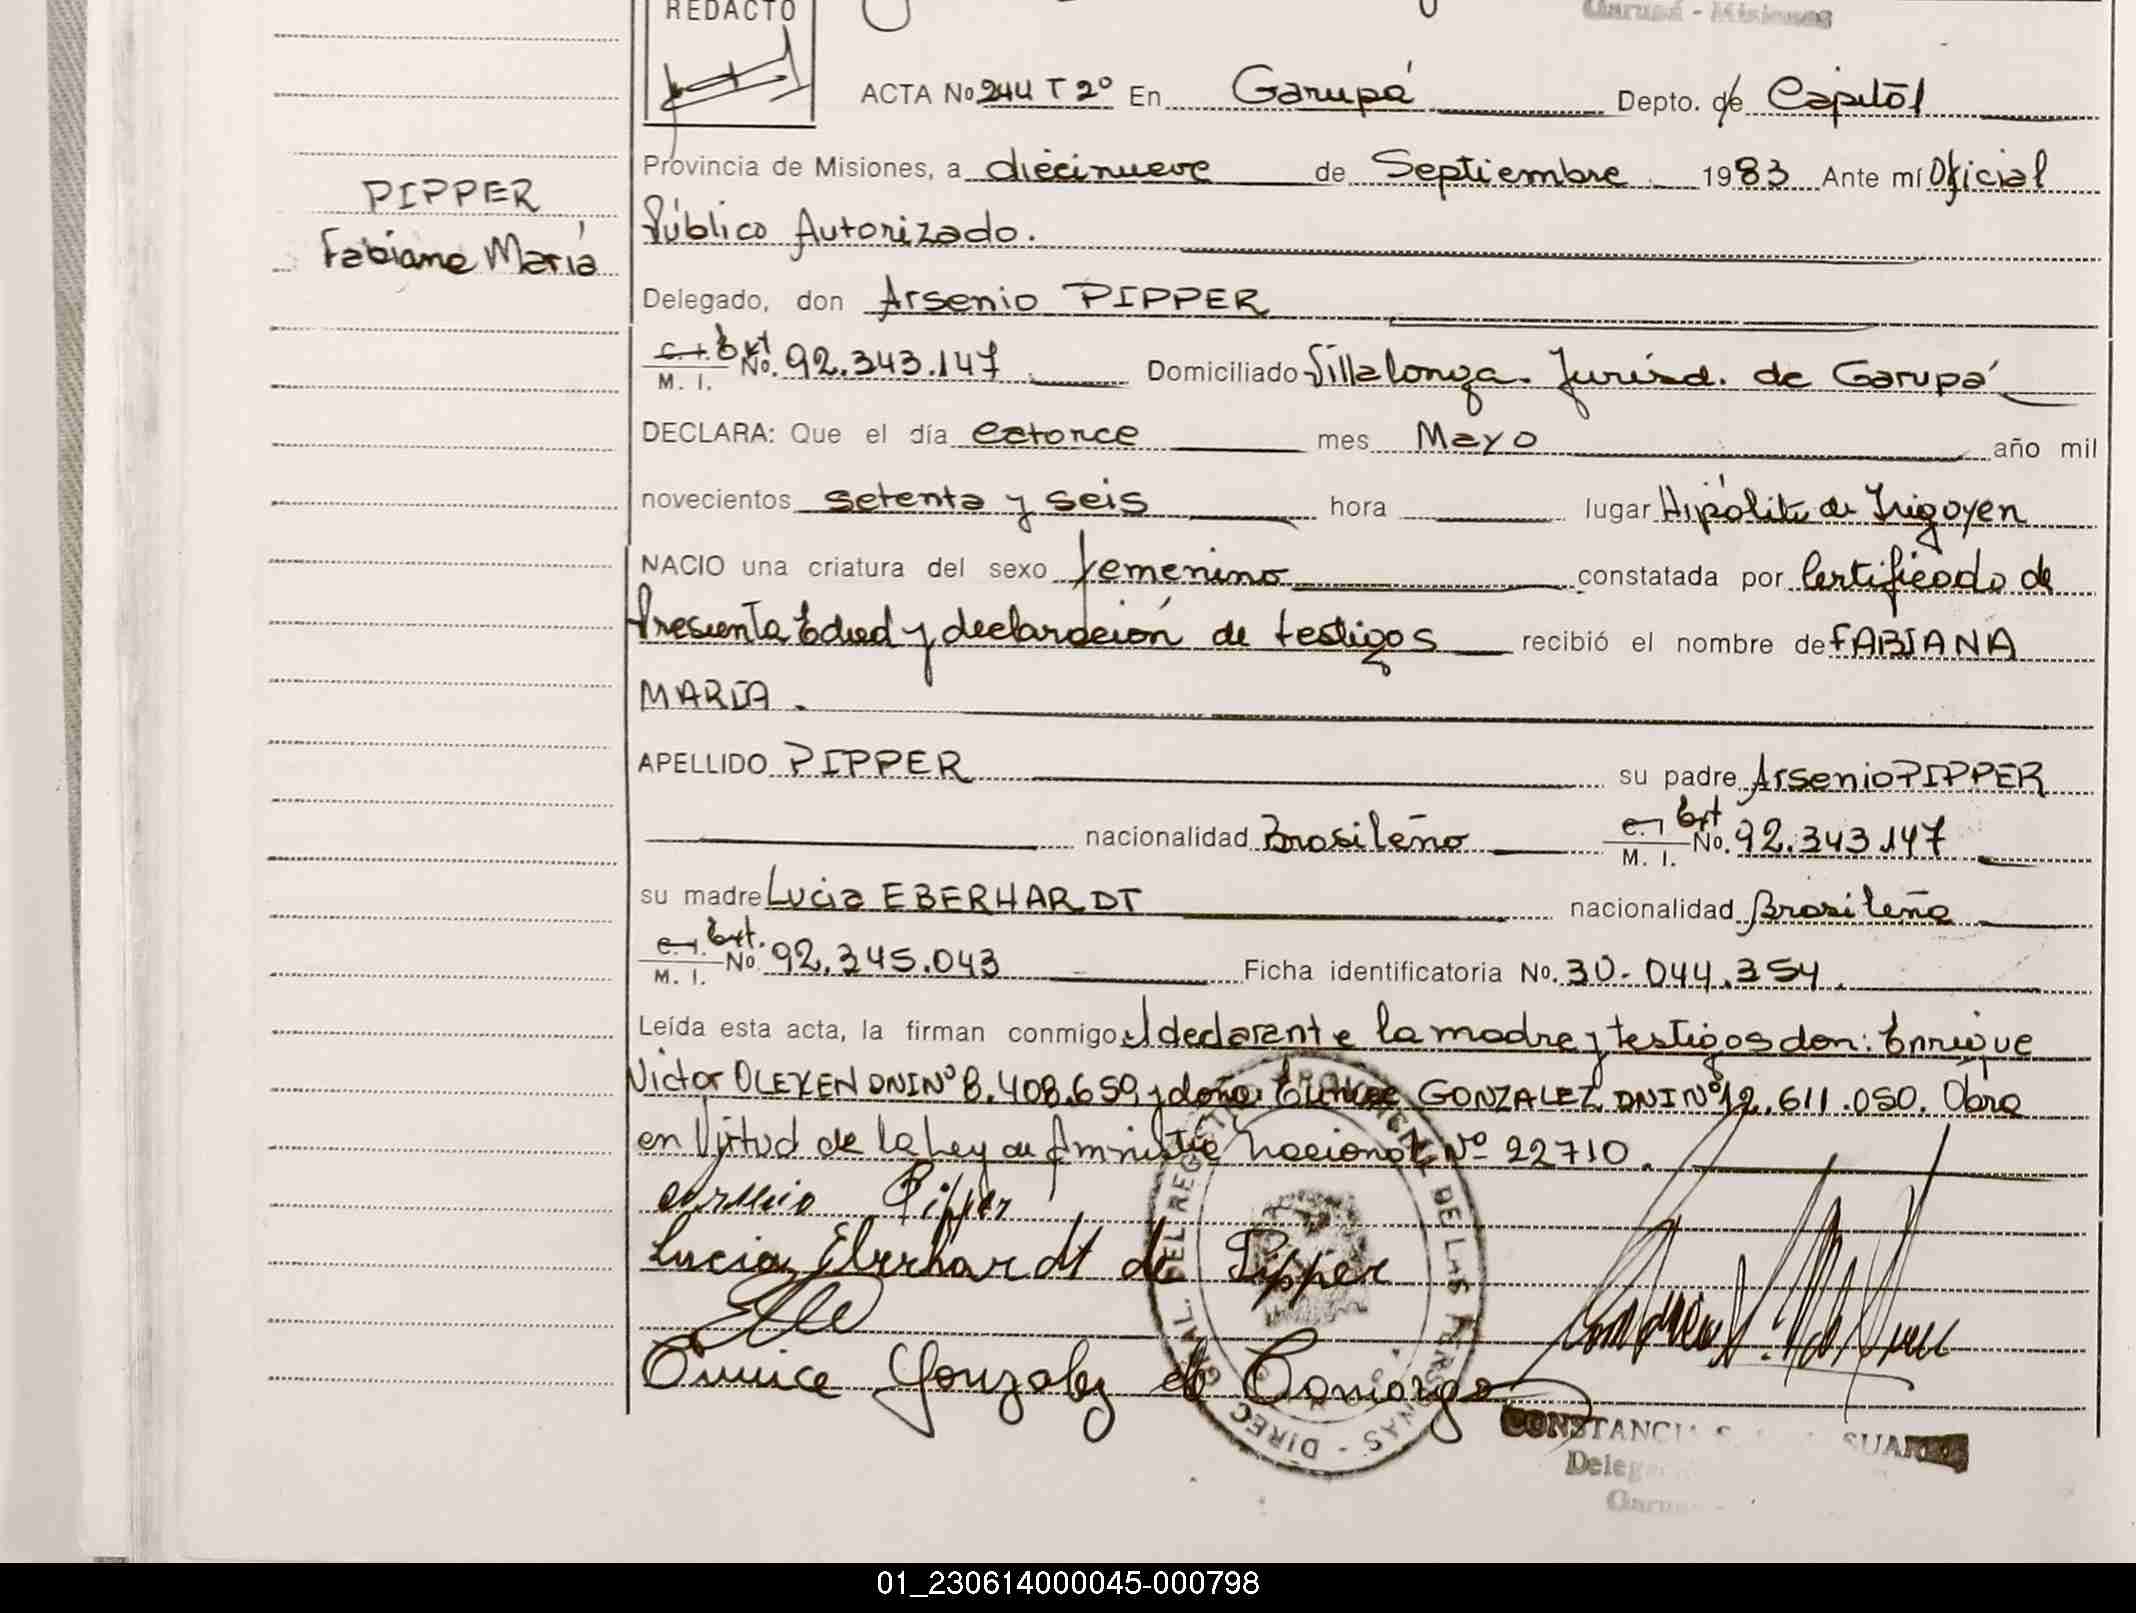 REDACTO
Garupá - Misiones
ACTA No 244 T 2º En Garupá Depto. de Capital
Provincia de Misiones, a diecinueve de Septiembre 1983 Ante mí Oficial
Público Autorizado.
PIPPER
Fabiana María
Delegado, don Arsenio PIPPER
C.I. Ext No. 92.343.147 Domiciliado Villalonga. Jurisd. de Garupá
M. I.
DECLARA: Que el día catorce mes Mayo año mil
novecientos setenta y seis hora lugar Hipólito de Irigoyen
NACIO una criatura del sexo femenino constatada por Certificado de
Presunta Edad y declaración de testigos recibió el nombre de FABIANA
MARIA.
APELLIDO PIPPER su padre Arsenio PIPPER
nacionalidad Brasileño C.I. Ext No. 92.343.147
M. I.
su madre Lucia EBERHARDT nacionalidad Brasileña
C.I. Ext. No. 92.345.043 Ficha identificatoria No. 30.044.354.
M. I.
Leída esta acta, la firman conmigo el declarante la madre y testigos don: Enrique
Victor OLEXEN DNI Nº 8.408.659 y doña: Eunice GONZALEZ DNI Nº 12.611.050. Obra
en Virtud de la Ley de Amnistia Nacional Nº 22710.
arsenio Pipper
Lucia Eberhardt de Pipper
Eunice Gonzalez de Camargo
DIREC GRAL. DEL REGISTRO PROVINCIAL DE LAS PERSONAS
CONSTANCIA S. SUAREZ
Delegada
Garupá
01_230614000045-000798